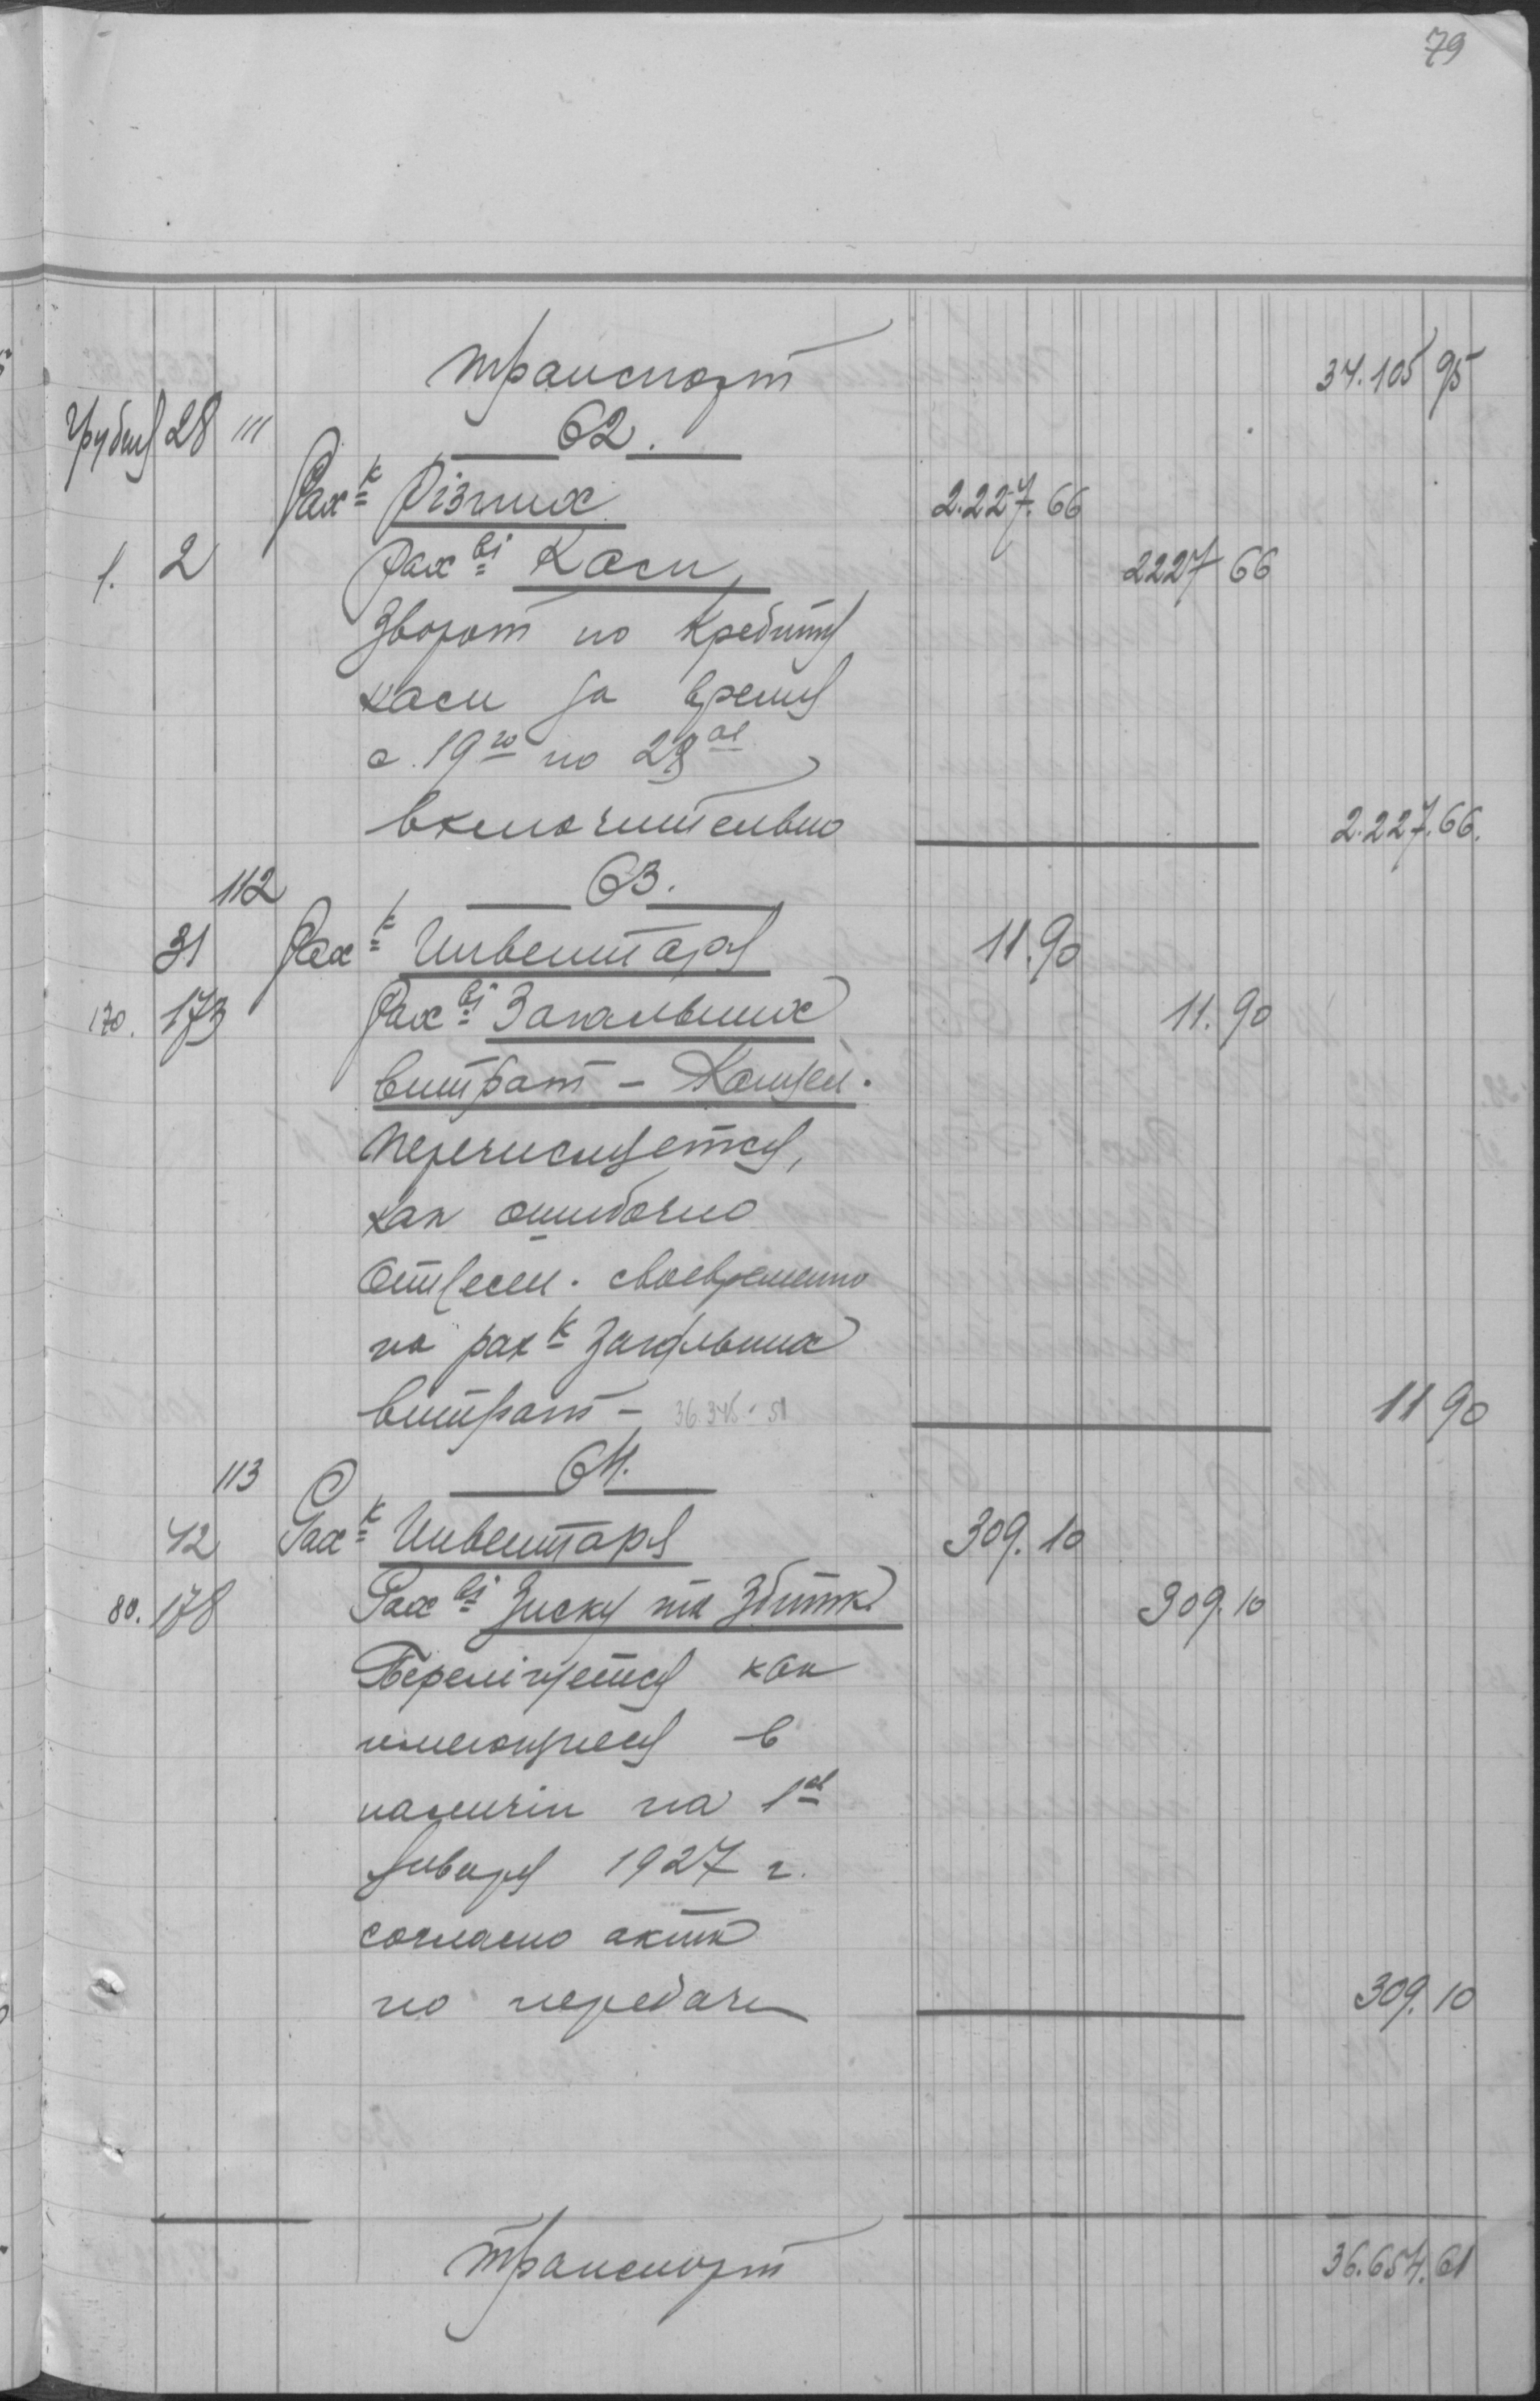 79
транспорт 34.105 95
Грудня 28 111 62.
Рахк Різних 2.227.66
1. 2 Рахві Каси 2227 66
Зворот по кредиту
каси за время
с 19го по 28ое
включительно 2.227.66.
112 63.
31 Рахк Инвентаря 11.90
170. 173 Рахві Загальних 11.90
витрат –
Перечисляется,
как ошибочно
отнесен. своевременно
на рахк загальних
витрат – 36.345 - 51 11 90
113 64.
42 Рахк Инвентаря 309.10
80. 178 Рахві Зиску та Збитк. 309.10
как
имеющиеся в
наличіи на 1ое
Января 1927 г.
согласно акта
по передачи 309.10
Транспорт 36.654.61